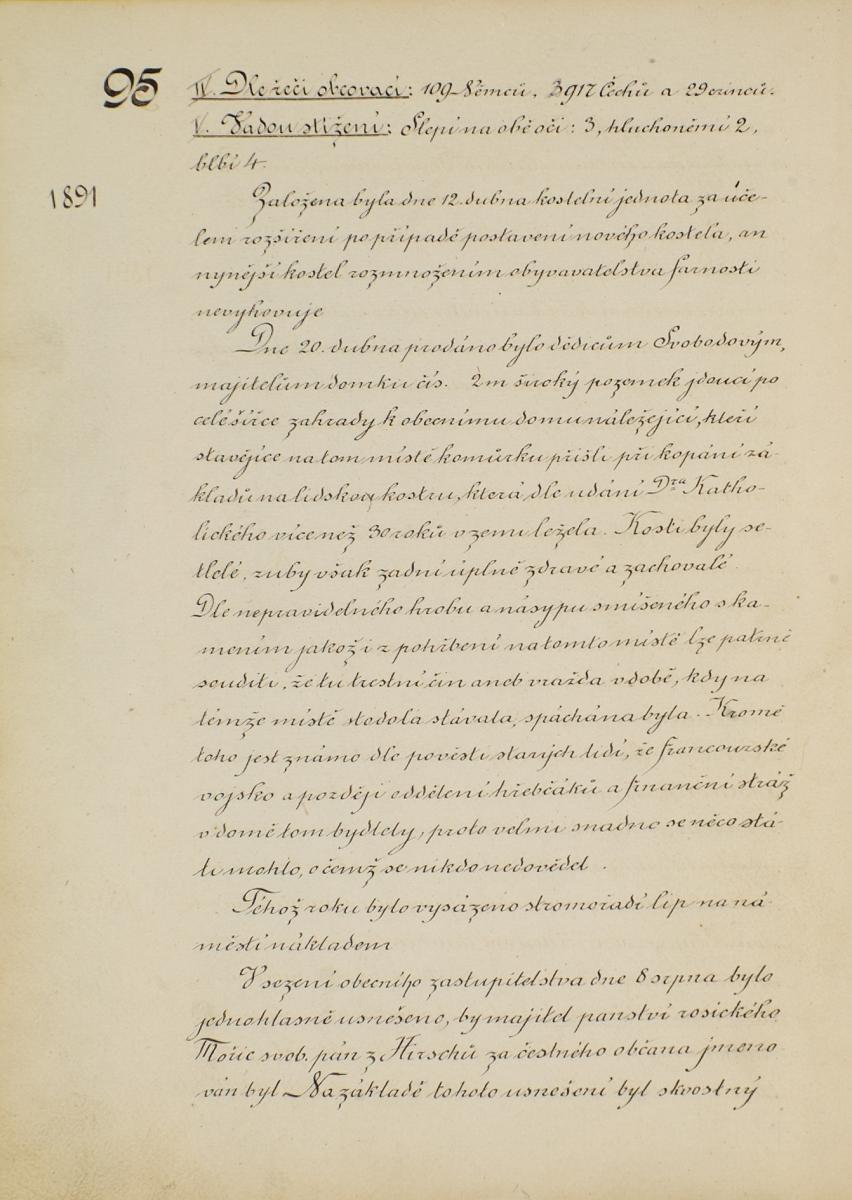 95
IV. Dle řeči obcovací: 109 Němců, 3917 Čechů a 29 cizinců.
V. Vadou stiženi: Slepí na obě oči: 3, hluchoněmí 2,
blbí 4.
1891
Založena byla dne 12. dubna kostelní jednota za úče-
lem rozšíření po případě postavení nového kostela, an
nynější kostel rozmnožením obyvavatelstva farnosti
nevyhovuje
Dne 20. dubna prodáno bylo dědicům Svobodovým,
majitelům domku čís. 2m široký pozemek jdoucí po
celé šířce zahrady k obecnímu domu náležející, kteří
stavějíce na tom místě komůrku přišli při kopání zá-
kladů na lidskou kostru, která dle udání Dra Katho-
lického více než 30 roků v zemi ležela. Kosti byly se-
tlelé, zuby však zadní úplně zdravé a zachovalé.
Dle nepravidelného hrobu a násypu smíšeného s ka-
mením jakož i z pohřbení na tomto místě lze patrně
souditi, že tu trestní čin aneb vražda v době, kdy na
témže místě stodola stávala, spáchána byla. Kromě
toho jest známo dle pověsti starých lidí, že francouzské
vojsko a později oddělení hřebčáků a finanční stráž
v domě tom bydlely, proto velmi snadno se něco stá-
ti mohlo, o čemž se nikdo nedověděl.
Téhož roku bylo vysázeno stromořadí lip na ná-
městí nákladem
V sezení obecního zastupitelstva dne 8 srpna bylo
jednohlasně usnešeno, by majitel panství rosického
Mořic svob. pán z Hirschů za čestného občana jmeno
ván byl Na základě tohoto usnešení byl skvostný